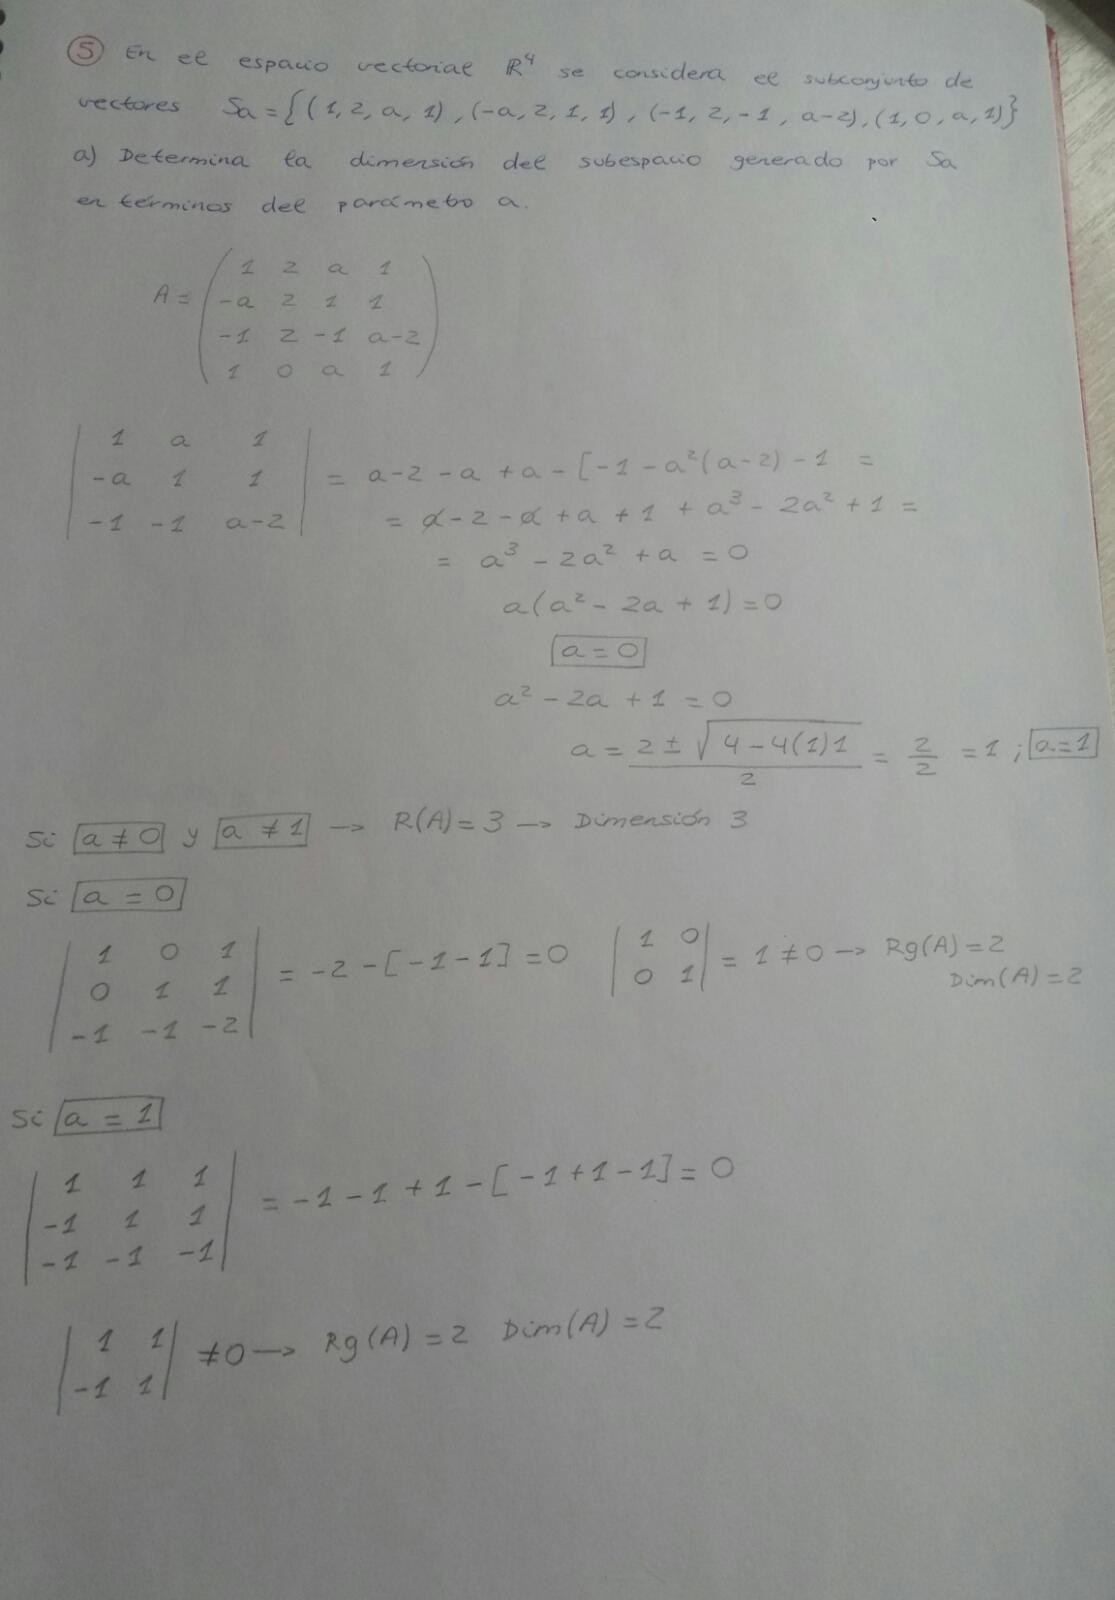 ⑤ En el espacio vectorial ℝ⁴ se considera el subconjunto de
vectores Sa = {(1, 2, a, 1), (-a, 2, 1, 1), (-1, 2, -1, a-2), (1, 0, a, 1)}
a) Determina la dimensión del subespacio generado por Sa
en términos del parámetro a.
1 2 a 1
A = -a 2 1 1
-1 2 -1 a-2
1 0 a 1
1 a 1
-a 1 1 = a-2-a+a-[-1-a²(a-2)-1 =
-1 -1 a-2 = a-2-a+a+1+a³-2a²+1 =
= a³-2a²+a = 0
a(a²-2a+1) = 0
a = 0
a²-2a+1 = 0
a = 2 ± √4-4(1)1 / 2 = 2/2 = 1 ; a = 1
Si a ≠ 0 y a ≠ 1 → R(A) = 3 → Dimensión 3
Si a = 0
1 0 1
0 1 1 = -2-[-1-1] = 0
-1 -1 -2
1 0
0 1 = 1 ≠ 0 → Rg(A) = 2
Dim(A) = 2
Si a = 1
1 1 1
-1 1 1 = -1-1+1-[-1+1-1] = 0
-1 -1 -1
1 1
-1 1 ≠ 0 → Rg(A) = 2 Dim(A) = 2